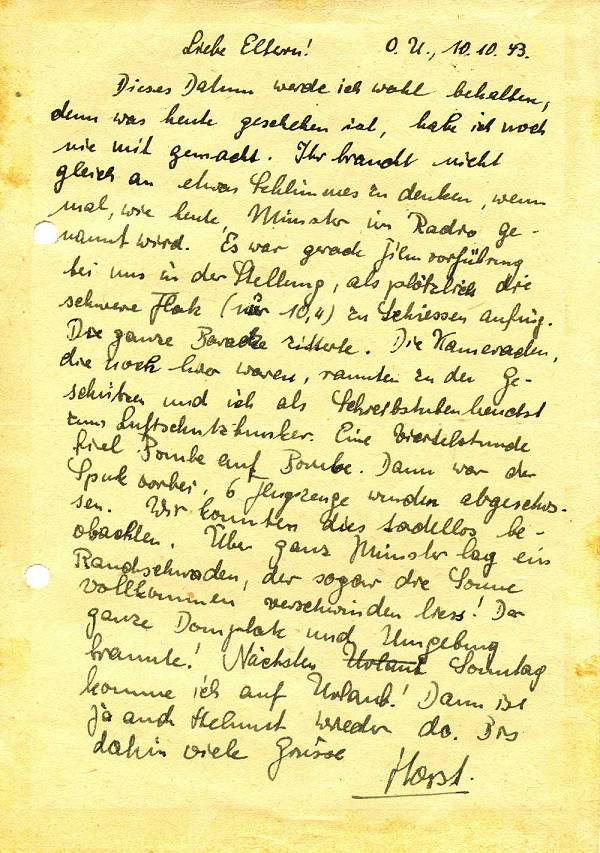 Liebe Eltern! O. U., 10.10.43.
Dieses Datum werde ich wohl behalten,
denn was heute geschehen ist, habe ich noch
nie mit gemacht. Ihr braucht nicht
gleich an etwas Schlimmes zu denken, wenn
mal, wie heute, Münster im Radio ge-
nannt wird. Es war gerade Filmvorführung
bei uns in der Stellung, als plötzlich die
schwere Flak (wir 10,4) zu Schiessen anfing.
Die ganze Baracke zitterte. Die Kameraden,
die noch hier waren, rannten zu den Ge-
schützen und ich als Schreibstubenhengst
zum Luftschutzbunker. Eine Viertelstunde
fiel Bombe auf Bombe. Dann war der
Spuk vorbei, 6 Flugzeuge wurden abgeschos-
sen. Wir konnten dies tadellos be-
obachten. Über ganz Münster lag ein
Rauchschwaden, der sogar die Sonne
vollkommen verschwinden liess! Der
ganze Domplatz und Umgebung
brannte! Nächsten Urlaub Sonntag
komme ich auf Urlaub! Dann ist
ja auch Helmut wieder da. Bis
dahin viele Grüsse
Horst.